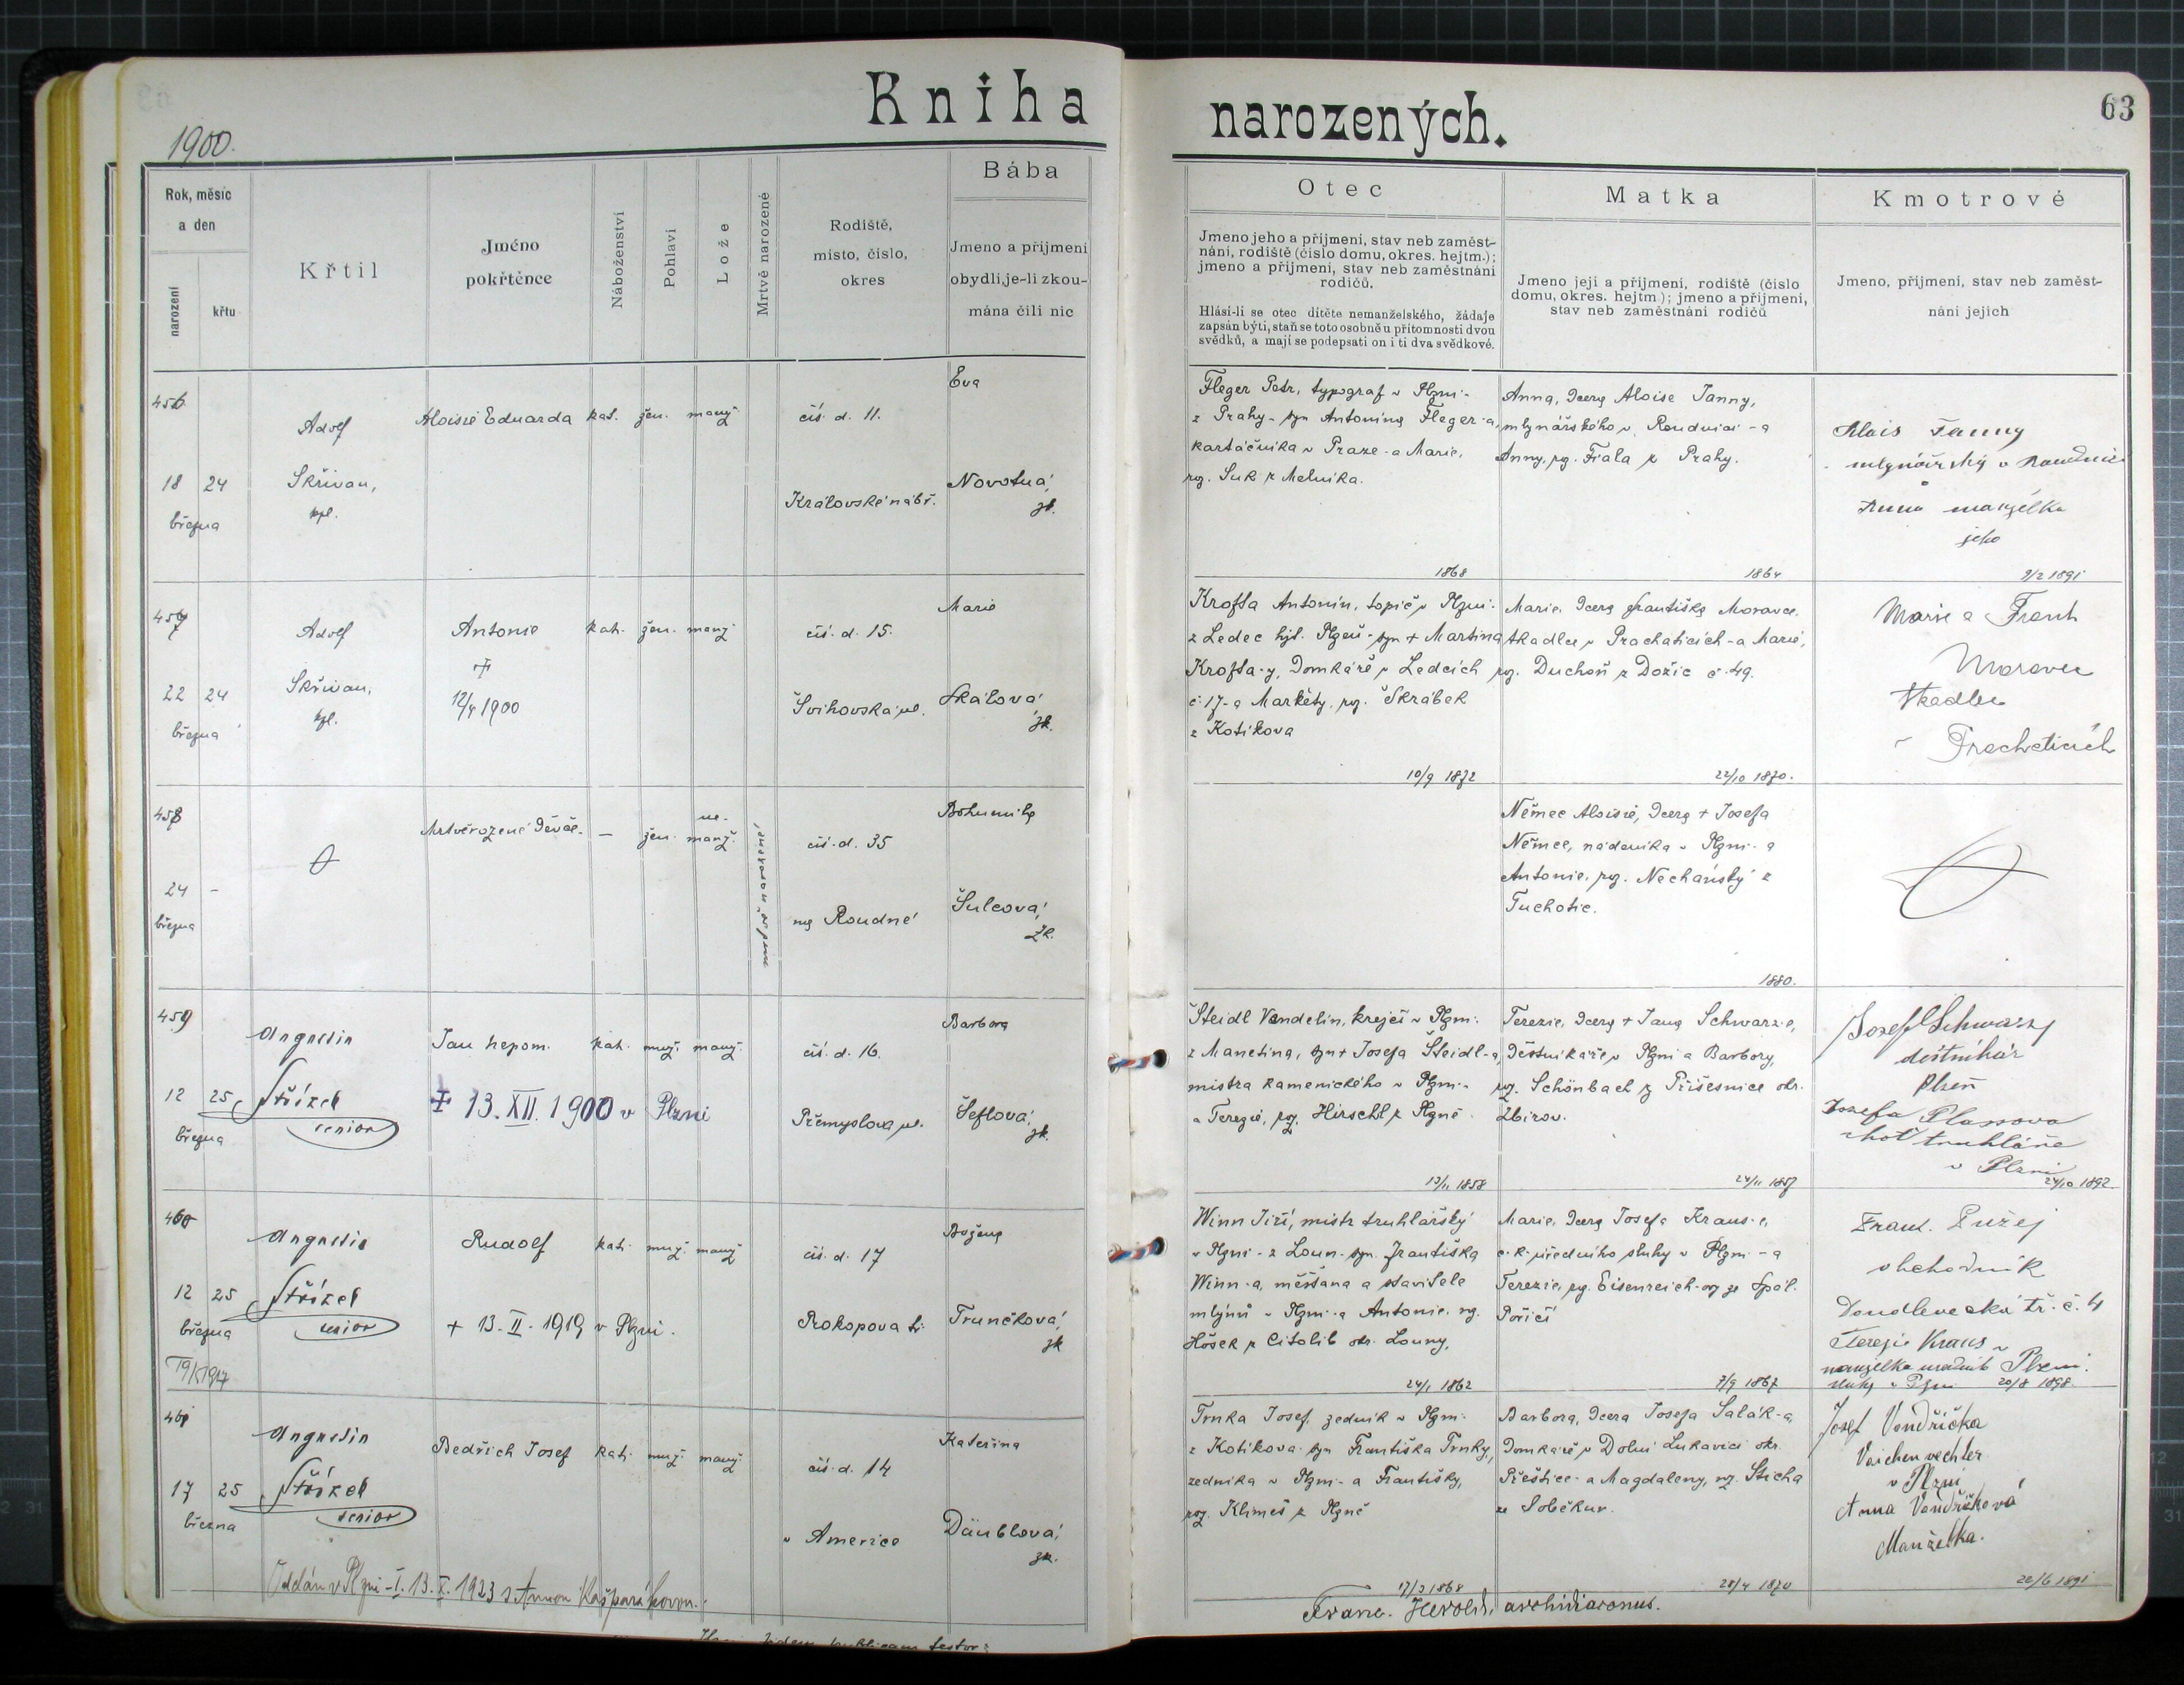 Kniha
narozených.
63
1900.
Rok, měsíc
a den
narození
křtu
Křtil
Jméno
pokřtěnce
Náboženství
Pohlaví
Lože
Mrtvě narozené
Rodiště,
místo, číslo,
okres
Bába
Jmeno a příjmení
obydlí, je-li zkou-
mána čili nic
Otec
Jmeno jeho a příjmení, stav neb zaměst-
nání, rodiště (číslo domu, okres. hejtm.);
jmeno a příjmení, stav neb zaměstnání
rodičů.
Hlásí-li se otec dítěte nemanželského, žádaje
zapsán býti, staň se toto osobně u přítomnosti dvou
svědků, a mají se podepsati on i ti dva svědkové.
Matka
Jmeno její a příjmení, rodiště (číslo
domu, okres. hejtm); jmeno a příjmení,
stav neb zaměstnání rodičů
Kmotrové
Jmeno, příjmení, stav neb zaměst-
nání jejich
456
18 24
března
Adolf
Skřivan,
kpl.
Aloisie Eduarda
kat.
žen.
manž.
čís. d. 11.
Královské nábř.
Eva
Novotná,
zk.
Fleger Petr, typograf v Plzni -
z Prahy - syn Antonína Fleger-a,
kartáčníka v Praze - a Marie,
roz. Suk z Melníka.
1868
Anna, dcera Aloise Fanny,
mlynářského v Roudnici - a
Anny, roz. Fiala z Prahy.
1864
Alois Fanny
mlynářský v Roudnici
Anna manželka
jeho
9/2 1891
457
22 24
března
Adolf
Skřivan,
kpl.
Antonie
†
12/4 1900
kat.
žen.
manž.
čís. d. 15.
Švihovská ul.
Marie
Skálová,
zk.
Krofta Antonín, topič v Plzni -
z Ledec hjt. Plzeň - syn † Martina
Krofta-y, domkáře v Ledcích
č. 17 - a Markéty, roz. Škrábek
z Kotikova
10/9 1872
Marie, dcera Františka Moravce,
tkadlce v Prachaticích - a Marie,
roz. Duchoň z Dožic č. 49.
22/10 1870.
Marie a Frant
Moravec
tkadlec
v Prachaticích
458
24 -
března
Mrtvěrozené děvče.
—
žen.
ne-
manž.
mrtvě narozené
čís. d. 35
na Roudné
Bohumila
Šulcová,
zk.
Němec Aloisie, dcera † Josefa
Němce, nádeníka v Plzni - a
Antonie, roz. Nechanský z
Tuchotic.
1880.
459
12 25
března
Augustin
Střízek
senior
Jan Nepom.
‡ 13. XII. 1900 v Plzni
kat.
muž.
manž.
čís. d. 16.
Přemyslova ul.
Barbora
Šeflová,
zk.
Šteidl Vendelín, krejčí v Plzni -
z Manetina, syn † Josefa Šteidl-a,
mistra kamenického v Plzni -
a Terezie, roz. Hirschl z Plzně.
13/11 1858
Terezie, dcera † Jana Schwarz-e,
deštníkáře v Plzni a Barbory,
roz. Schönbach z Příšesnice okr.
Zbirov.
24/11 1857
Josef Schwarz
deštníkář
Plzeň
Josefa Plassova
choť truhláře
v Plzni
24/10 1892.
460
12 25
března
19/5 1917
Augustin
Střízek
senior
Rudolf
+ 13. II. 1919 v Plzni.
kat.
muž.
manž.
čís. d. 17
Prokopova tř.
Božena
Trunečková,
zk
Winn Jiří, mistr truhlářský
v Plzni - z Loun - syn Františka
Winn-a, měšťana a stavitele
mlýnů v Plzni - a Antonie, roz.
Hošek z Citolib okr. Louny.
24/1 1862
Marie, dcera Josefa Kraus-e,
c. k. úředního sluhy v Plzni - a
Terezie, roz. Eisenreich-ov ze Spál.
Poříčí
7/9 1867
Frant. Pužej
obchodník
Doudlevecká tř. č. 4
Terezie Kraus
manželka uředník
sluhy v Plzni
20/8 1898.
461
17 25
března
Augustin
Střízek
senior
Bedřich Josef
kat.
muž.
manž.
čís. d. 14
v Americe
Kateřina
Däublová,
zk.
Oddán v Plzni - I. 13. X. 1923 s Annou Kašparákovou.
Trnka Josef, zedník v Plzni -
z Kotikova - syn Františka Trnky,
zedníka v Plzni - a Františky,
roz. Klimeš z Plzně
17/3 1868
Barbora, dcera Josefa Salák-a,
domkáře v Dolní Lukavici okr.
Přeštice - a Magdaleny, roz. Sticha
ze Soběkur.
28/4 1870
Josef Vondřička
Vaichenvechter
v Plzni
Anna Vondřičková
Manželka.
22/6 1891
Franc. Herold, archidiaconus.